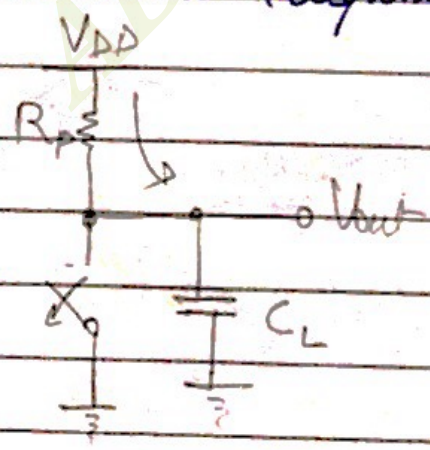 VDD
Rp
Vout
CL